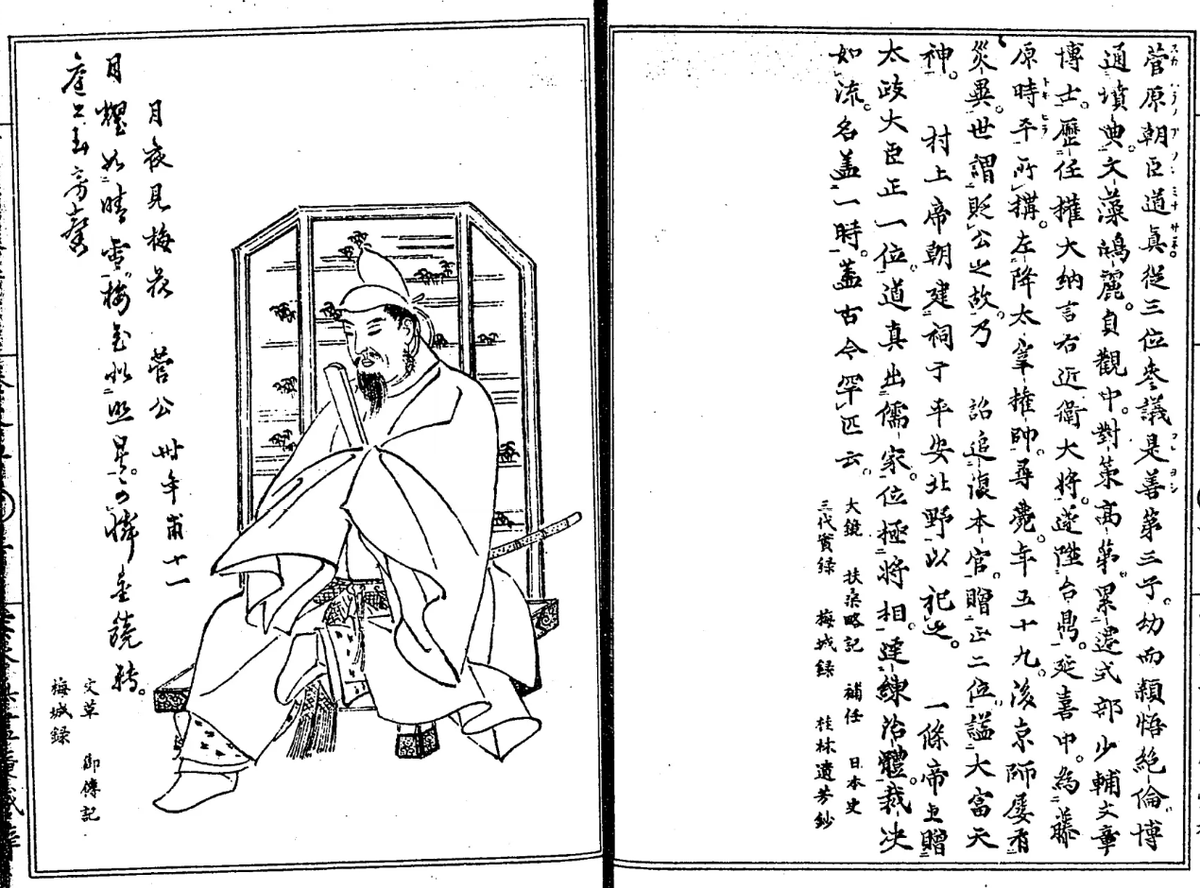 菅原朝臣道眞從三位參議是善第三子。幼而頴悟絶倫博
通墳典。文藻鴻麗。貞觀中。對策高第。累遷式部少輔文章
博士。歷任權大納言右近衛大將。遂陞台鼎。延喜中。為藤
原時平所搆。左降太宰權帥。尋薨。年五十九。後京師屡有
災異。世謂貶公之故。乃 詔追復本官。贈正二位。謚大富天
神。 村上帝朝建祠于平安北野以祀之。 一條帝更贈
太政大臣正一位。道真出儒家。位極將相。達練治體。裁决
如流。名蓋一時。蓋古今罕匹云。
大鏡 扶桑略記 補任 日本史
三代實録 梅城録 桂林遺芳鈔
月夜見梅花 菅公 卅年甫十一
月耀如晴雪。梅花似照星。可憐金鏡轉。
庭上玉房馨
文草 御傳記
梅城録